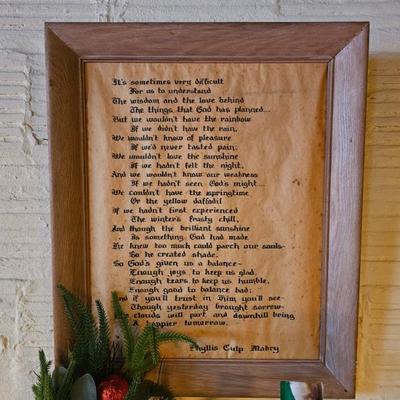 It's sometimes very difficult
For us to understand
The wisdom and the love behind
The things that God has planned...
But we wouldn't have the rainbow
If we didn't have the rain,
We wouldn't know of pleasure
If we'd never tasted pain;
We wouldn't love the sunshine
If we hadn't felt the night,
And we wouldn't know our weakness
If we hadn't seen God's might...
We couldn't have the springtime
Or the yellow daffodil
If we hadn't first experienced
The winter's frosty chill,
And though the brilliant sunshine
Is something God had made
He knew too much could parch our souls-
So he created shade.
So God's given us a balance-
Enough joys to keep us glad,
Enough tears to keep us humble,
Enough good to balance bad;
And if you'll trust in Him you'll see-
Though yesterday brought sorrow-
The clouds will part and dawnhill bring
A happier tomorrow.
Phyllis Culp Mabry